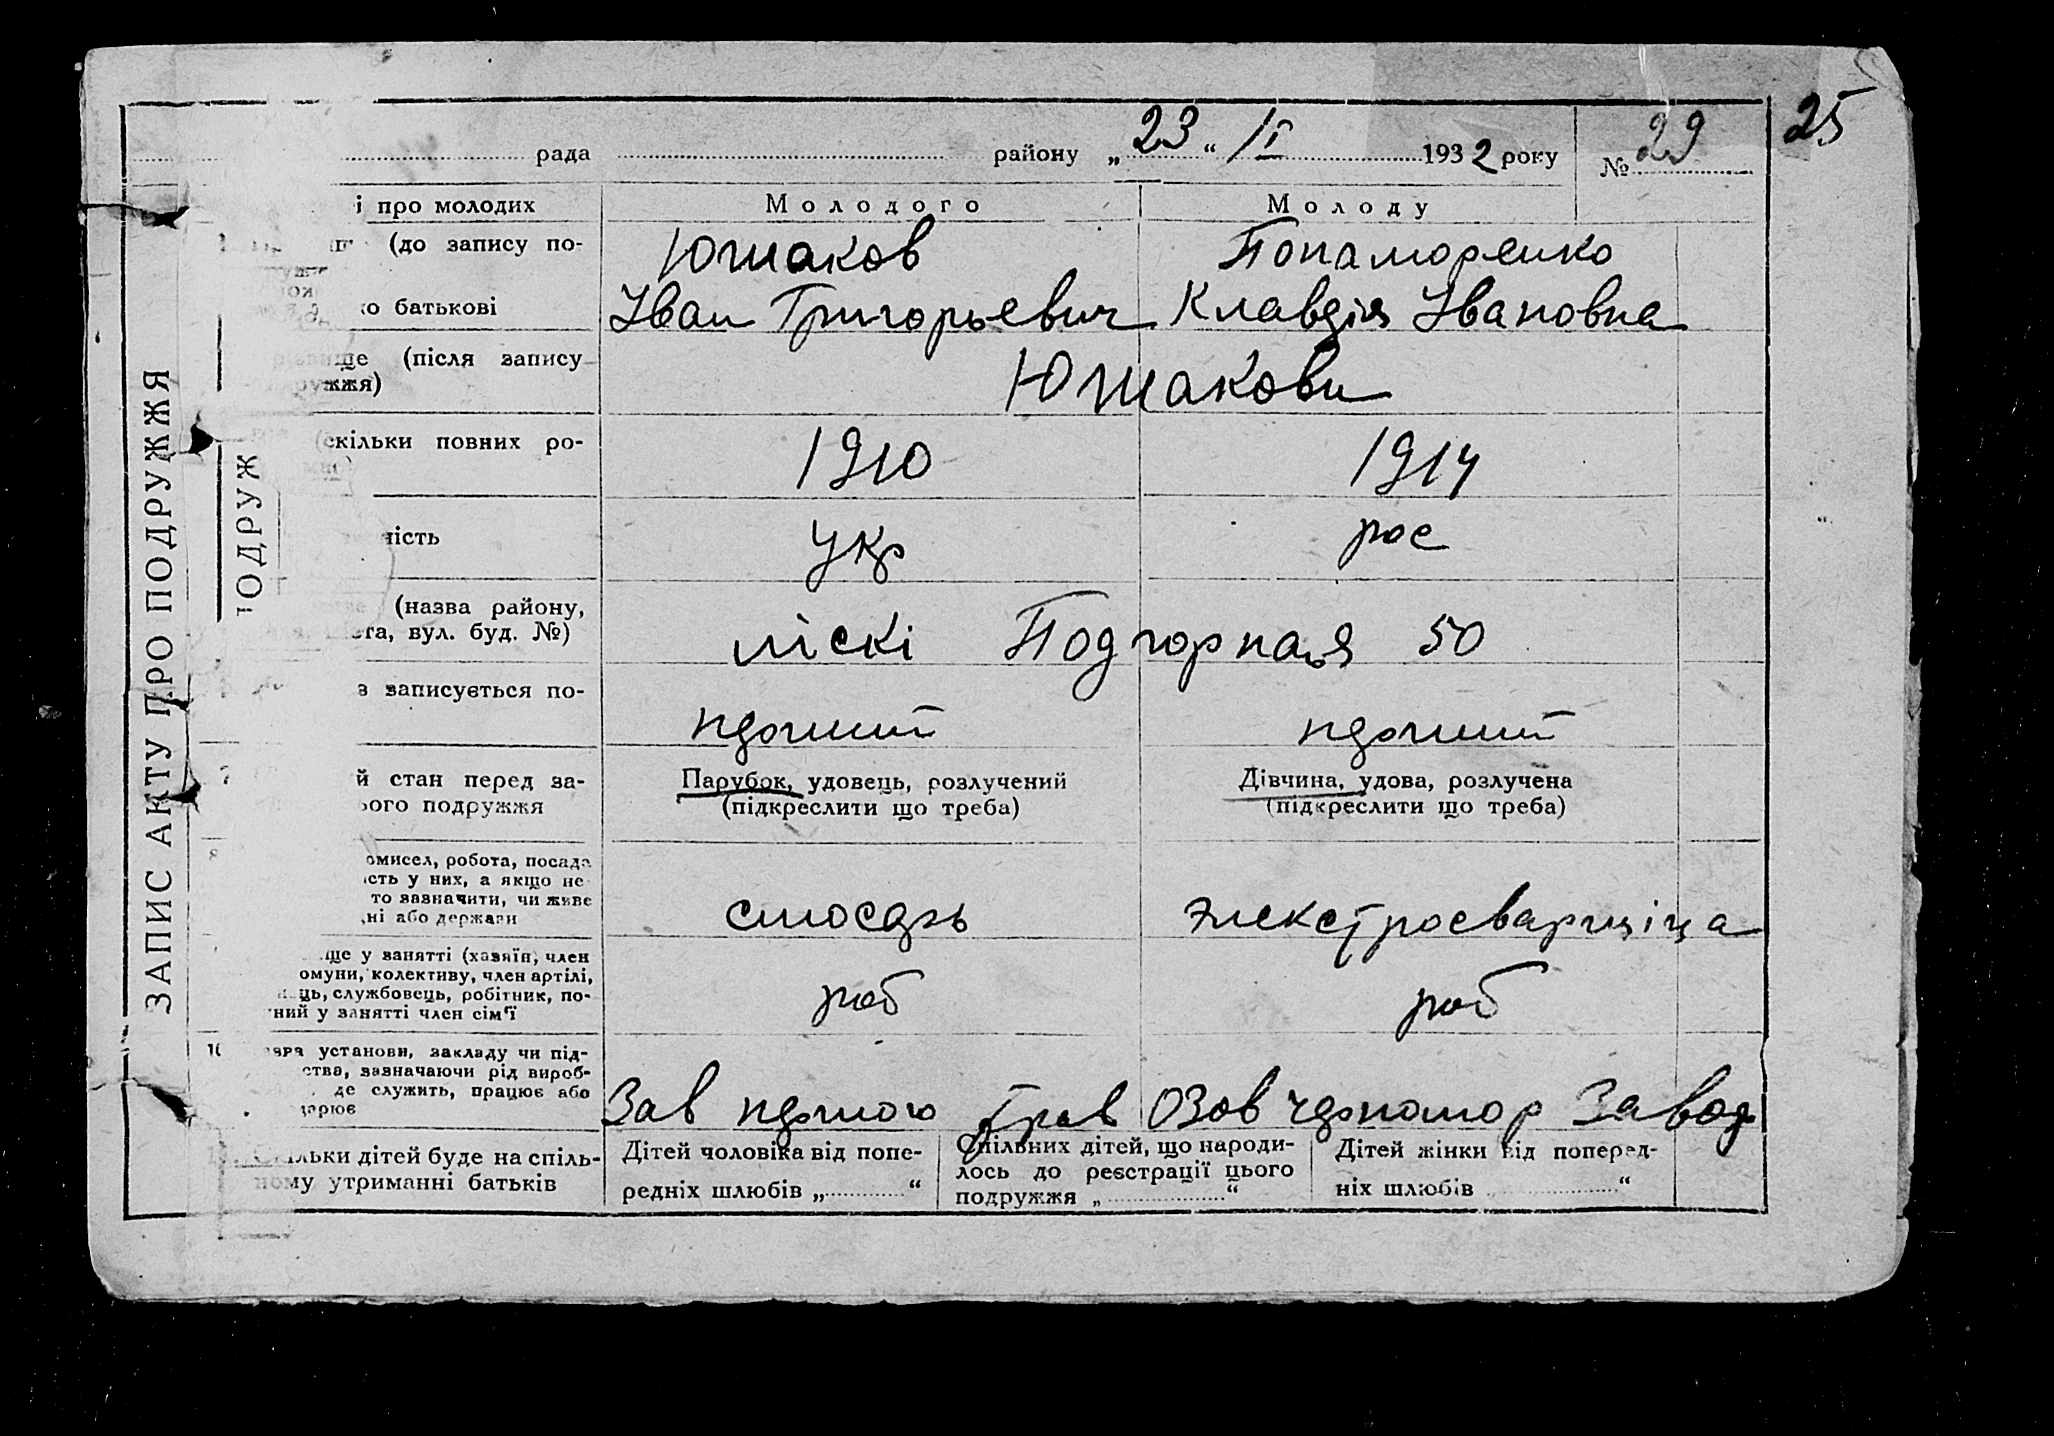 25
рада району „23“ II 1932 року № 29
і про молодих Молодого Молоду
(до запису по-
Юшаков Понаморенко
о батькові Іван Григорьевич Клавдія Ивановна
(після запису
Юшакови
жжя)
скільки повних ро- 1910 1914
ість укр рос
(назва району,
та, вул. буд. №) піскі Подгорная 50
в записується по-
первий первий
й стан перед за- Парубок, удовець, розлучений Дівчина, удова, розлучена
ого подружжя (підкреслити що треба) (підкреслити що треба)
омисел, робота, посада
ість у них, а якщо не
то зазначити, чи живе
ні або держави слюсарь электросварщіца
ще у занятті (хазяїн, член
омуни, колективу, член артілі,
ець, службовець, робітник, по-
ний у занятті член сім'ї роб роб
10 установи, закладу чи під-
ства, зазначаючи рід вироб-
де служить, працює або
Зав Азов Завод
ільки дітей буде на спіль-
ному утриманні батьків
Дітей чоловіка від попе-
редніх шлюбів „ “
Спільних дітей, що народи-
лось до реєстрації цього
подружжя „ “
Дітей жінки від поперед-
ніх шлюбів „ “
ЗАПИС АКТУ ПРО ПОДРУЖЖЯ
ОДРУЖ